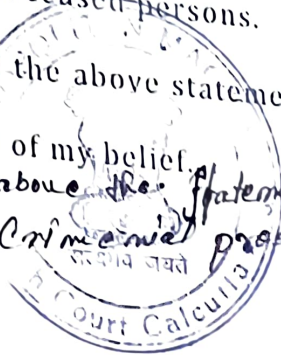 persons.
the above stateme
of my belief.
above the statem
Criminal
सत्यमेव जयते
Court Calcutta